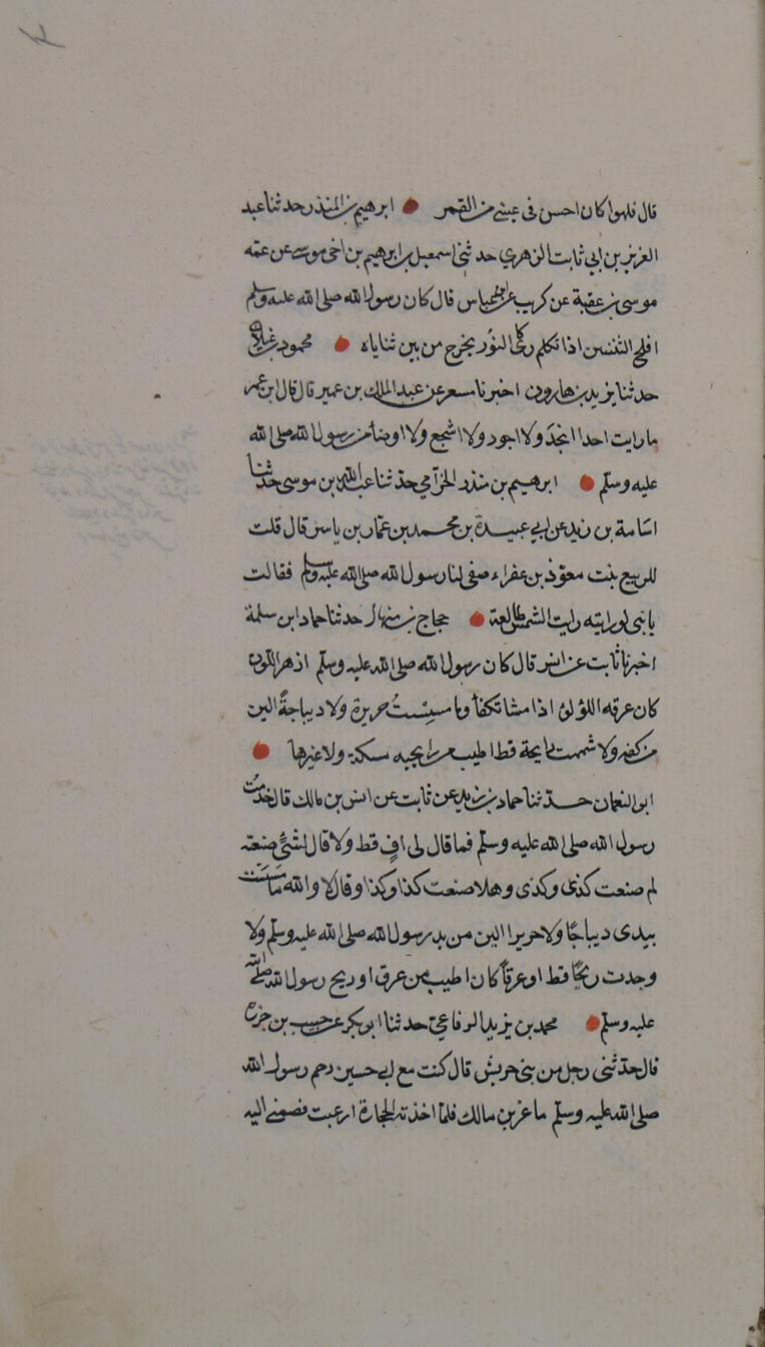 قال فلهوا كان احسن فى عينى من القمر ابرهيم بن المنذر حدثنا عبد
العزيز بن ابي ثابت الزهري حدثنى اسمعيل بن ابرهيم بن اخى موسى عن عمه
موسى بن عقبة عن كريب عن ابن عباس قال كان رسول الله صلى الله عليه وسلم
افلج الثنتين اذا تكلم رئى كالنور يخرج من بين ثناياه محمود بن غيلان
حدثنا يزيد بن هارون اخبرنا مسعر عن عبد الملك بن عمير قال قال ابن عمر
ما رايت احدا انجدَ ولا اجود ولا اشجع ولا اوضأ من رسول الله صلى الله
عليه وسلم ابرهيم بن منذر الحزامي حدثنا عبد الله بن موسى حدثنا
اسامة بن زيد عن ابي عبيدة بن محمد بن عمار بن ياسر قال قلت
للربيع بنت معوّذ بن عفراء صفى لنا رسول الله صلى الله عليه وسلم فقالت
يا بنى لو رايته رايت الشمس طالعة حجاج بن منهال حدثنا حماد ابن سلمة
اخبرنا ثابت عن انس قال كان رسول الله صلى الله عليه وسلم ازهر اللون
كان عرقه اللؤلؤ اذا مشا تكفأ وما مسِسْتُ حريرة ولا ديباجةً الين
من كفه ولا شممت رايحة قط اطيب من رايحته مسكة ولا غيرها
ابو النعمان حدثنا حماد بن زيد عن ثابت عن انس بن مالك قال خدمت
رسول الله صلى الله عليه وسلم فما قال لى افٍ قط ولا قال لشئٍ صنعته
لم صنعت كذى وكذى وهلا صنعت كذا وكذا وقال لا والله ما مسَسَت
بيدى ديباجًا ولا حريرا الين من يد رسول الله صلى الله عليه وسلم ولا
وجدت ريحًا قط او عرقاً كان اطيب من عرق او ريح رسول الله صلى الله
عليه وسلم محمد بن يزيد الرفاعي حدثنا ابو بكر عن حبيب بن خدره
قال حدثنى رجل من بنى حريش قال كنت مع ابى حين رجم رسول الله
صلى الله عليه وسلم ماعز بن مالك فلما اخذته الحجارة ارعبت فضمنى اليه